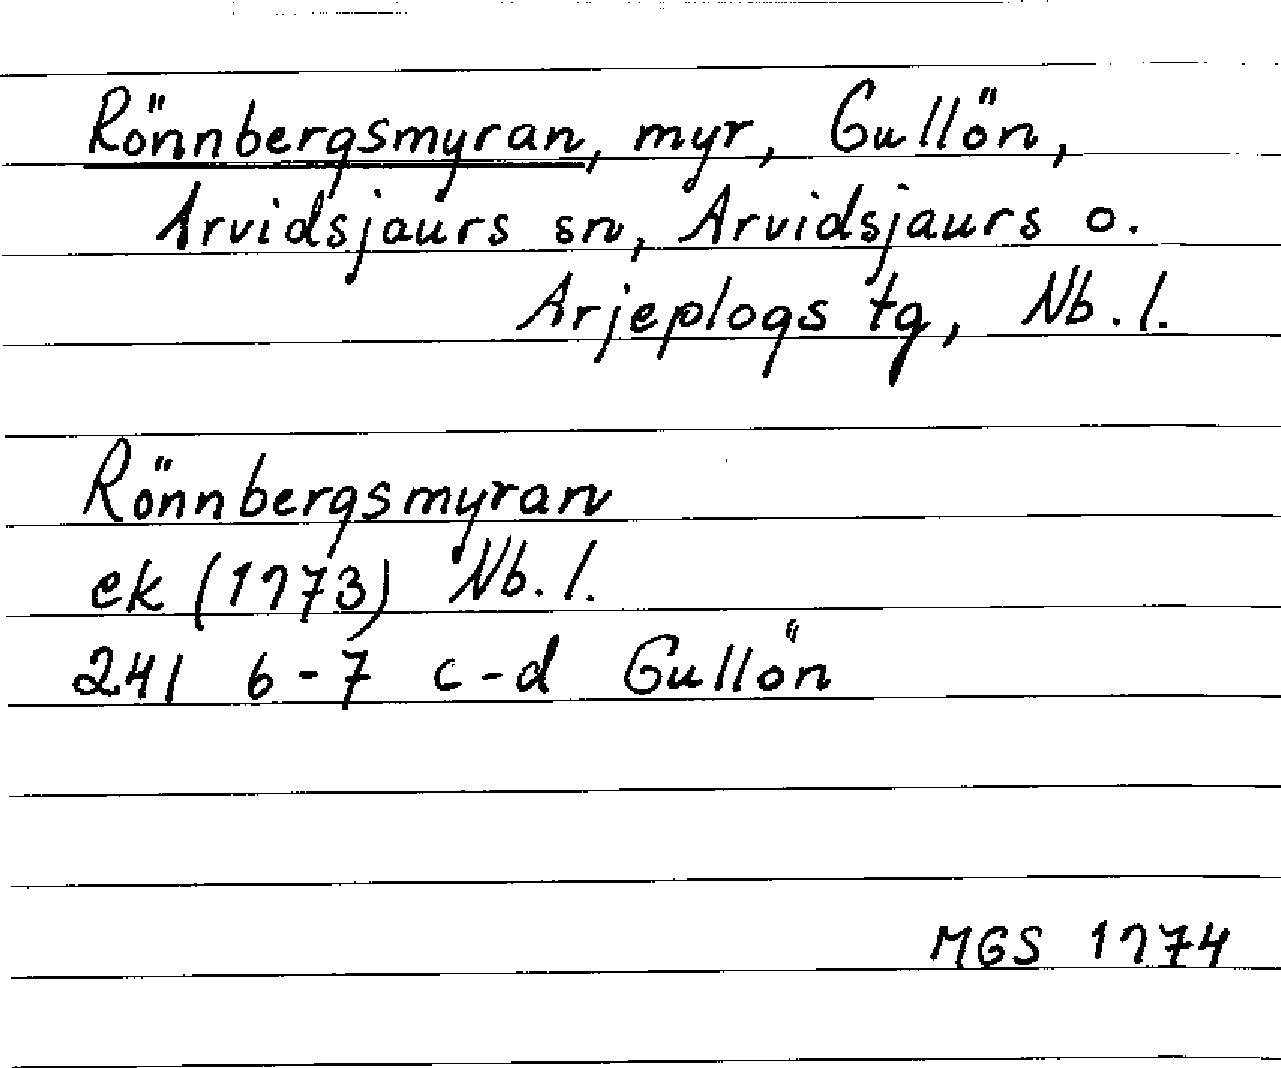 Rönnbergsmyran, myr, Gullön,
Arvidsjaurs sn, Arvidsjaurs o.
Arjeplogs tg, Nb. l.
Rönnbergsmyran
ek (1973) Nb. l.
24I 6-7 c-d Gullön
MGS 1974